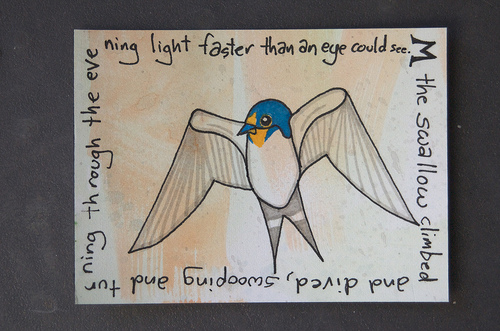 M
the swallow climbed
and dived, swooping and tur
ning through the eve
ning light faster than an eye could see.